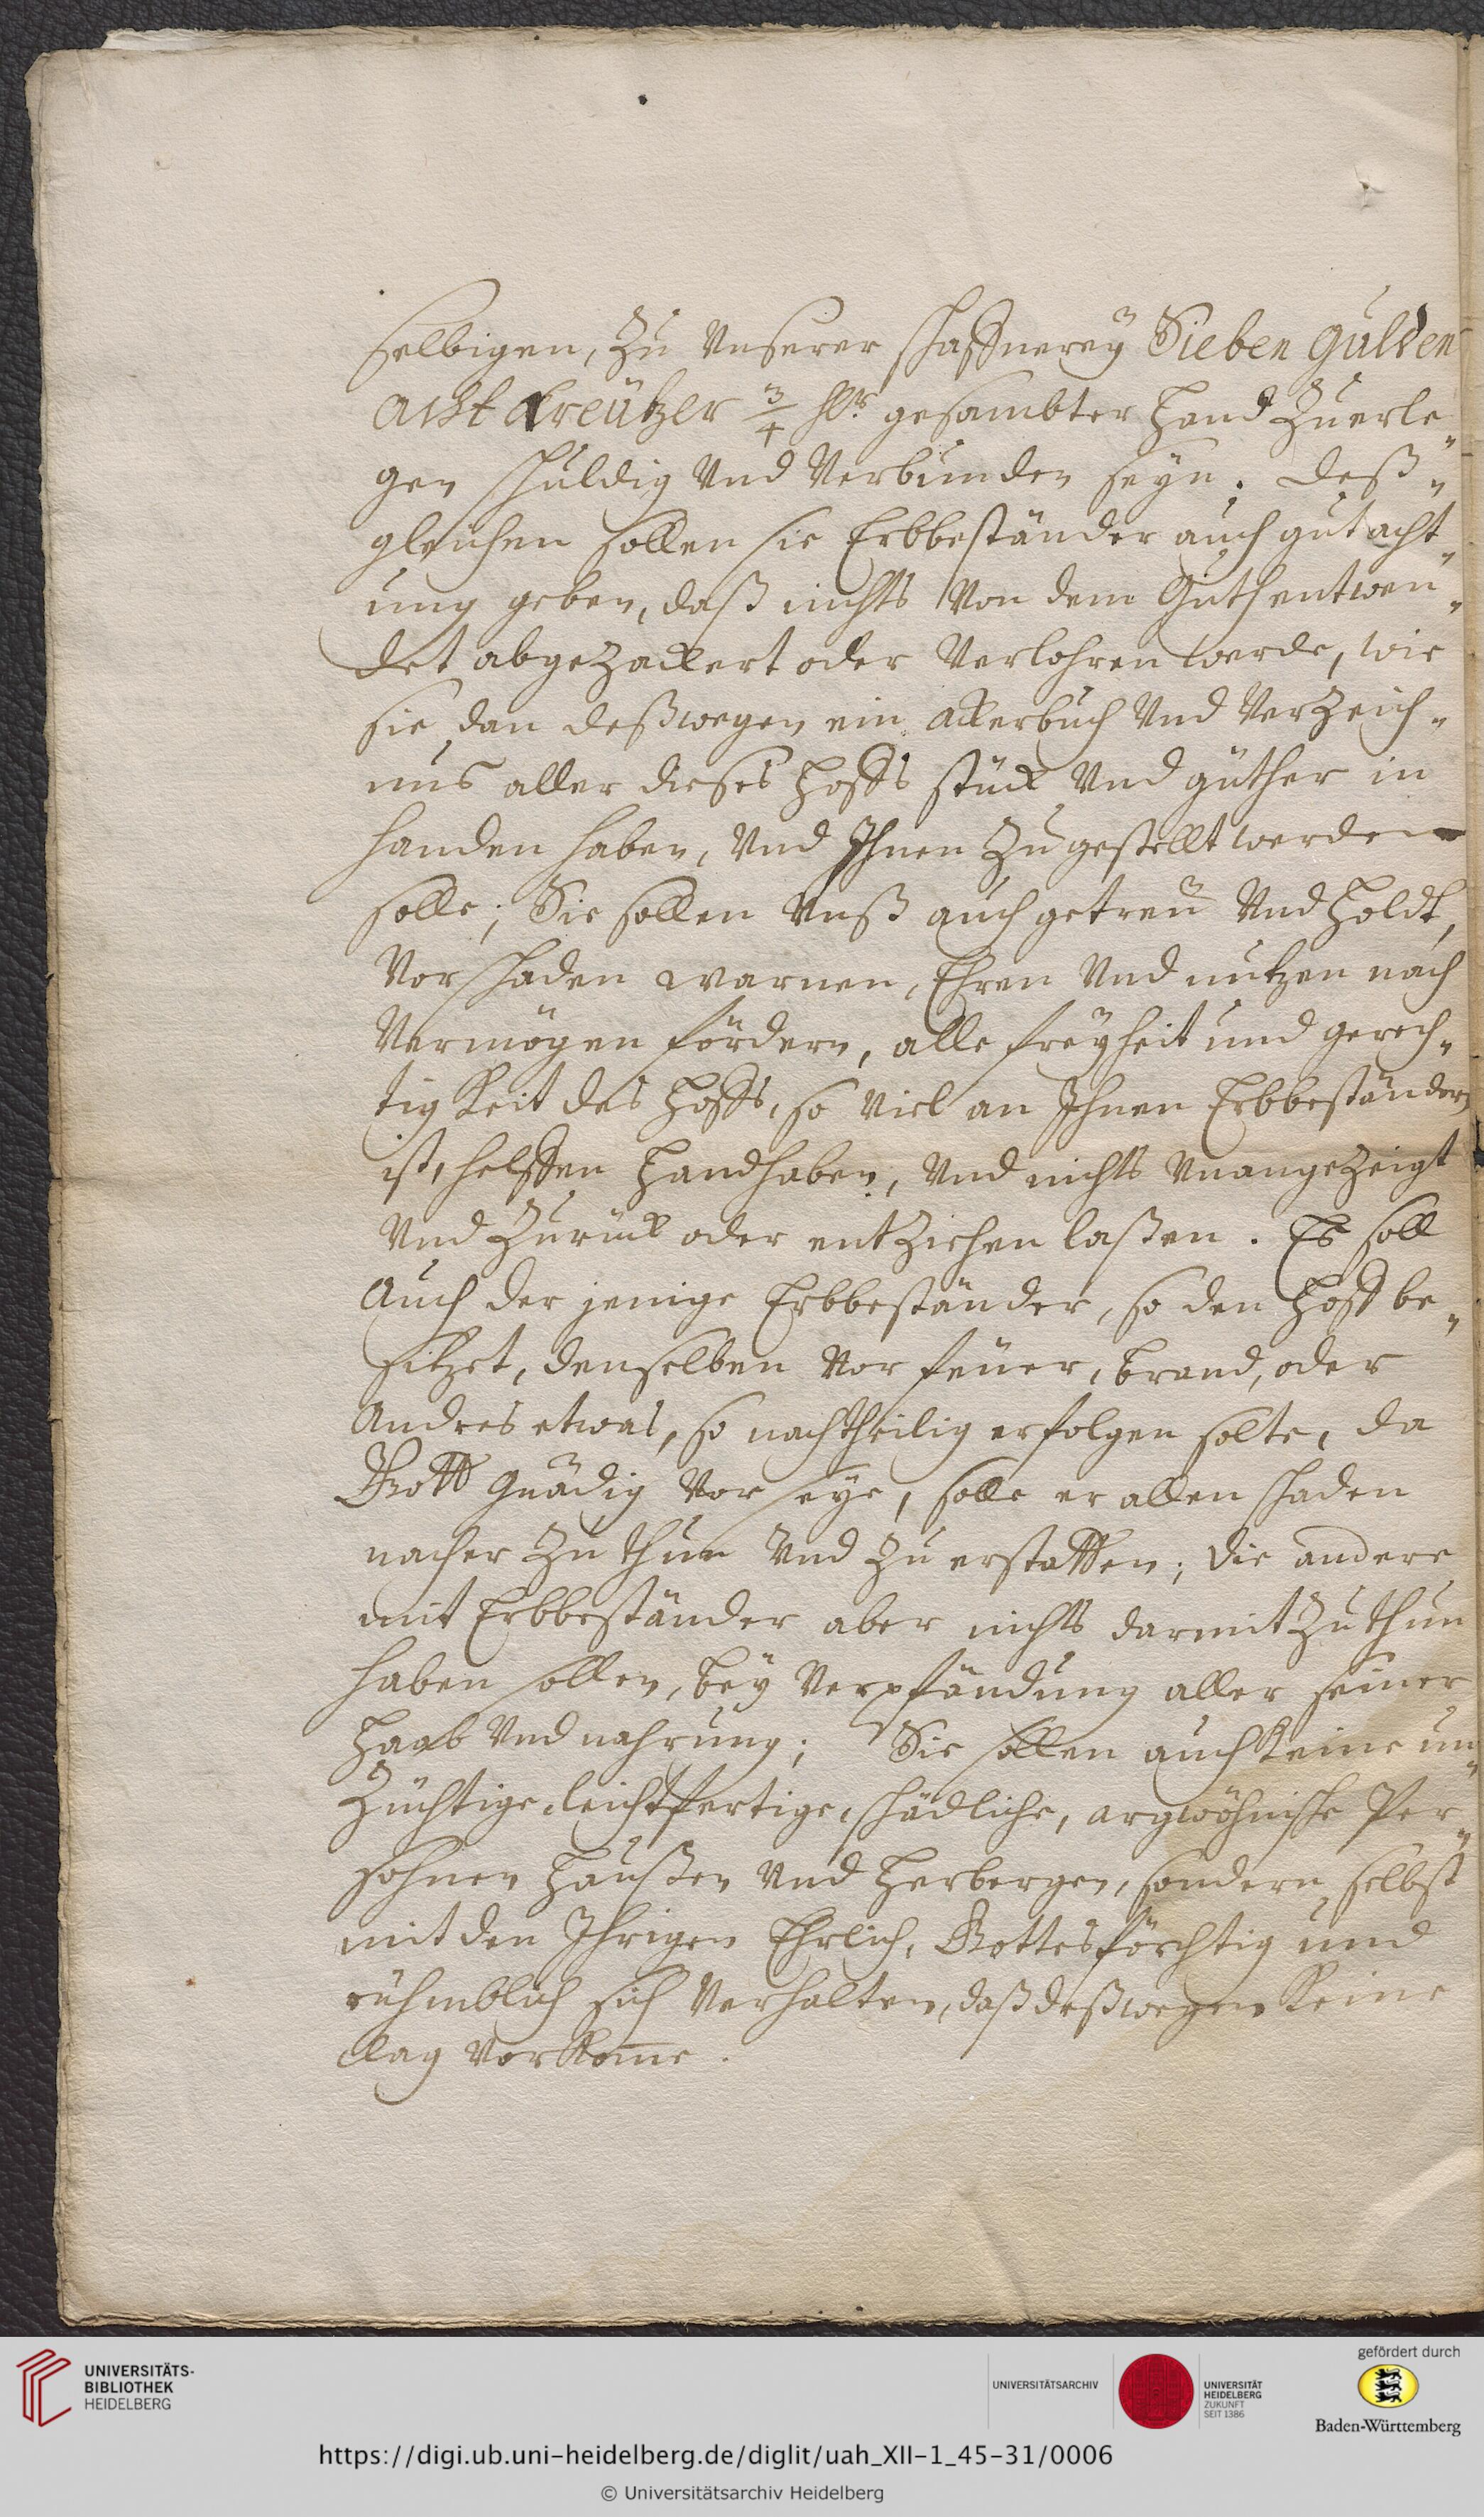 selbigen, Zu Unserer schaffnerey Sieben Gulden
Acht Kreützer 3/4 hlr. gesambter Hand Zuerle„
gen schuldig Und Verbunden seyn. Deß„
gleichen sollen sie Erbbeständer auch gut acht„
ung geben, daß nichts Von dem Guth entwen„
det abgezackert oder Verlohren werde, wie
sie dan deßwegen ein ackerbuch Und Verzeich„
nus aller dieses Hoffs stück Und güther in
handen haben, Und Ihnen Zugestellt werden
solle; Sie sollen Unß auch getreu Und Holdt,
Vor schaden warnen, Ehren Und nutzen nach
Vermögen fördern, alle freyheit und gerech„
tigkeit des Hoffs, so Viel an Ihnen Erbbeständern
ist, helffen Handhaben, Und nichts Unangezeigt
Und Zurück oder entziehen laßen. Es soll
Auch der jenige Erbbeständer, so den Hoff be„
sitzet, denselben Vor feuer, brand, oder
Andres etwas, so nachtheilig erfolgen solte, da
Gott Gnädig Vor seye, solle er allen schaden
nacher Zu thun Und Zu erstatten; die andere
mit Erbbeständer aber nichts darmit Zuthun
haben sollen, bey Verpfändung aller seiner
Haab Und nahrung; Sie sollen auch keine un„
Züchtige, leichtfertige, schädliche, argwöhnische Per„
sohnen Haußen Und Herbergen, sondern selbst
mit den Ihrigen Ehrlich, Gottesförchtig und
rühmblich sich Verhalten, daß deßwegen keine
klag Vorkome.
UNIVERSITÄTS-
BIBLIOTHEK
HEIDELBERG
UNIVERSITÄTSARCHIV
UNIVERSITÄT
HEIDELBERG
ZUKUNFT
SEIT 1386
gefördert durch
Baden-Württemberg
https://digi.ub.uni-heidelberg.de/diglit/uah_XII-1_45-31/0006
© Universitätsarchiv Heidelberg